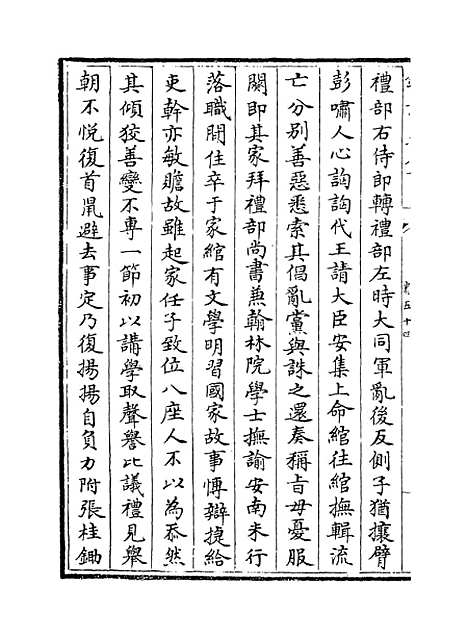 禮部右侍郎轉禮部左時大同軍亂後反側子猶攘臂
彭嘯人心詾詾代王請大臣安集上命綰往綰撫輯流
亡分別善惡悉索其倡亂黨與誅之還奏稱旨母憂服
闋即其家拜禮部尚書兼翰林院學士撫諭安南未行
落職閒住卒于家綰有文學明習國家故事博辯捷給
吏幹亦敏贍故雖起家任子致位八座人不以為忝然
其傾狡善變不專一節初以講學取聲譽比議禮見舉
朝不悅復首鼠避去事定乃復揚揚自負力附張桂鋤
卷五十四